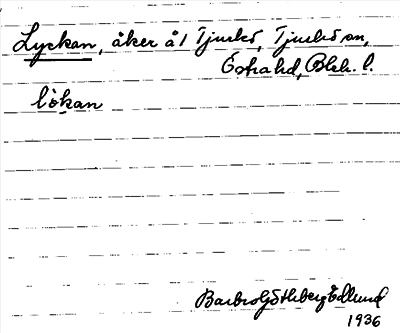 Lyckan, åker å 1 Tjurkö, Tjurkö sn,
Östra hd, Blek. l.
lök̬an
Barbro Götheberg Edlund
1936